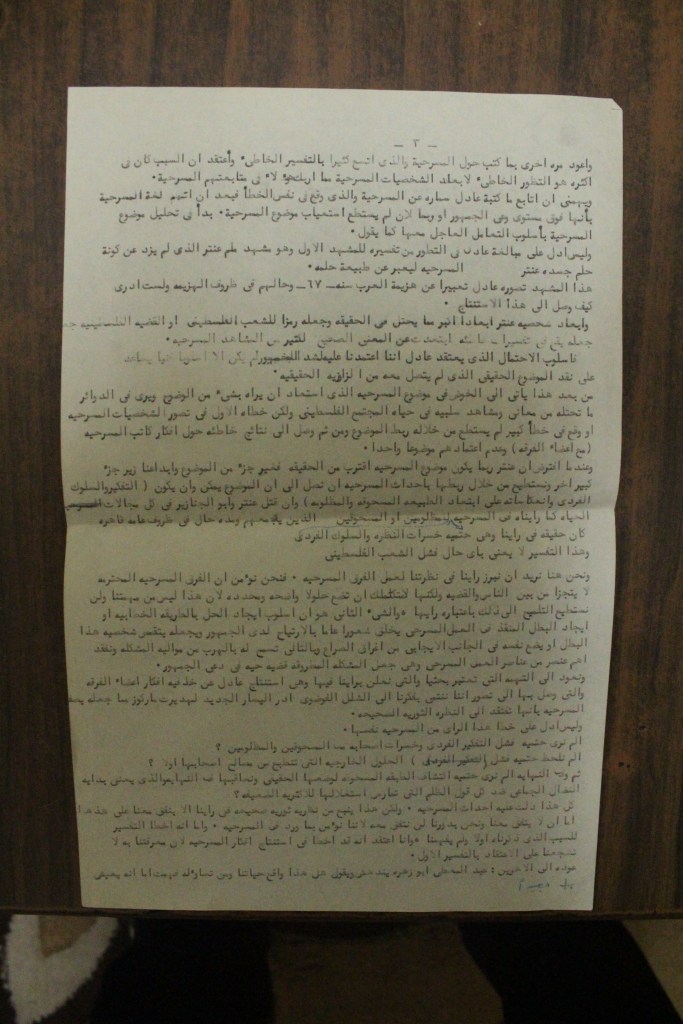 — ٣ —
واعود مره اخرى بما كتب حول المسرحية والذى اتسع كثيرا بالتفسير الخاطى٠ وأعتقد ان السبب كان فى
اكثره هو التطور الخاطى٠ لابعاد الشخصيات المسرحية مما فى متابعتهم المسرحية٠
ويهمنى ان اتابع ما كتبة عادل سماره عن المسرحية والذى وقع فى نفس الخطأ فبعد ان اتهم لغة المسرحية
بأنها فوق مستوى وعى الجمهور او ربما لان لم يستطع استيعاب موضوع المسرحية٠ بدأ فى تحليل موضوع
المسرحية بأسلوب التعامل العاجل معها كما يقول٠
وليس ادل على مبالغة عادل فى التطور من تفسيره للمشهد الاول وهو مشهد حلم عنتر الذى لم يزد عن كونة
حلم جسده عنتر المسرحيه ليعبر عن طبيعة حلمه٠
هذا المشهد تصوره عادل تعبيرا عن هزيمة الحرب سنه— ٦٧— وحالهم فى ظروف الهزيمه ولست ادرى
كيف وصل الى هذا الاستنتاج ٠
وابعاد شخصيه عنتر ابعادا اكبر مما يحتمل فى الحقيقه وجعله رمزا للشعب الفلسطينى او القضيه الفلسطينيه
جعله يقع فى تفسيرات خاطئه ابتعدت عن المعنى الصحيح لكثير من المشاهد المسرحيه ٠
فاسلوب الاحتمال الذى يعتقد عادل اننا اعتمدنا عليه لم يكن الا
على نقد الموضوع الحقيقى الذى لم يتصل معه من الزاويه الحقيقيه٠
من بعد هذا يأتى الى الخوض فى موضوع المسرحيه الذى استطاع ان يراه بشى٠ من الوضوع ويرى فى الدوائر
ما تحتله من معانى ومشاهد سلبيه فى حياه المجتمع الفلسطينى ولكن خطاءه الاول فى تصور الشخصيات المسرحيه
او وقع فى خطأ كبير لم يستطع من خلاله ربط الموضوع ومن ثم وصل الى نتائج خاطئه حول افكار كاتب المسرحيه
( مع اعضا٠ الفرقه ) وعدم اعتمادهم موضوعا واحدا٠
وعندما افترض ان عنتر ربما يكون موضوع المسرحيه اقترب من الحقيقه فعنتر جز٠ من الموضوع وايضا عنا زير جز٠
كبير اخر ونستطيع من خلال ربطها باحداث المسرحيه ان نصل الى ان الموضوع يمكن وان يكون ( التفكير والسلوك
الفردى وانعكاساته على ابتعاد الطبيعه المسحوقه والمظلومه ) وان فشل عنتر وابو الجنازير فى كل مجالات
الحياه كما رايناه فى المسرحيه المظلومين او المسحوقين الذين يجمعهم وحده حال فى ظروف عامه قاهره
كان حقيقه فى راينا وهى حتميه خسرات النظره والسلوك الفردى
وهذا التفسير لا يعنى باى حال فشل الشعب الفلسطينى
ونحن هنا نريد ان نبرز راينا فى نظرتنا لعمل الفرق المسرحيه ٠ فنحن نو٠من ان الفرق المسرحيه المحترمه
لا يتجزا من بين الناس والقضيه ولكنها ان تضع حلولا واضحه ومحدده لان هذا ليس من مهمتنا ولن
نستطيع التلميح الى ذلك باعتباره رايها ٠والشى٠ الثانى هو ان اسلوب ايجاد الحل بالطريقه الخطابيه او
ايجاد البطل المنقذ فى العمل المسرحى يخلق شعورا عاما بالارتياح لدى الجمهور ويجعله يتقمص شخصيه هذا
البطل او يضع نفسه فى الجانب الايجابى من اطراف الصراع وبالتالى تسمح له بالهرب من مواجهة المشكله ونفقد
اهم عنصر من عناصر العمل المسرحى وهى جعل المشكله المطروقه قضيه حيه فى دعى الجمهور٠
ونعود الى الشبهه التى تعتبر بحثيا والتى نعلن براينا فيها وهى استنتاج عادل عن خلفيه افكار اعضا٠ الفرقه
والتى وصل بها الى تصور اننا ننتمى بفكرنا الى الفوضوى اذر اليسار الجديد لهيربرت ماركوز مما جعله يصف
المسرحيه بانها تفتقد الى النظره الثوريه الصحيحه٠
وليس ادل على خطأ هذا الراى من المسرحيه نفسها٠
الم نرى حتميه فشل التفكير الفردى وخسرات اصحابه من المسحوقين والمظلومين ؟
الم نلحظ حتميه فشل ( التفكير الفردى ) الحلول الخارجيه التى تنطبع من مصالح اصحابها اولا ؟
ثم وفى النهايه الم نرى حتميه اكتشاف الطبقه المسحوقه لوضعها الحقيقى وتماثلها ضد والذى يعنى بدايه
النضال الجماعى ضد كل قوى الظلم التى تمارس استغلالها للاكثريه الضعيفه؟
كل هذا دلت عليه احداث المسرحيه ٠ ولكن هذا ينبع من نظريه ثوريه صحيحه فى راينا الا يتفق معنا على هذا
اما ان لا يتفق معنا ونحن بدورنا لن نتفق معه لاننا نو٠من بما ورد فى المسرحيه ٠ واما انه اخطأ التفسير
للسبب الذى ذكرناه اولا ولم يفهمنا ٠وانا اعتقد انه قد اخطأ فى استنتاج افكار المسرحيه لان معرفتنا به لا
تشجعنا على الاعتقاد بالتفسير الاول٠
عوده الى الاخرين : عبد المعطى ابو زهره ويقول هل هذا واقع حياتنا ومن تساو٠له فهمت اما انه يعيش